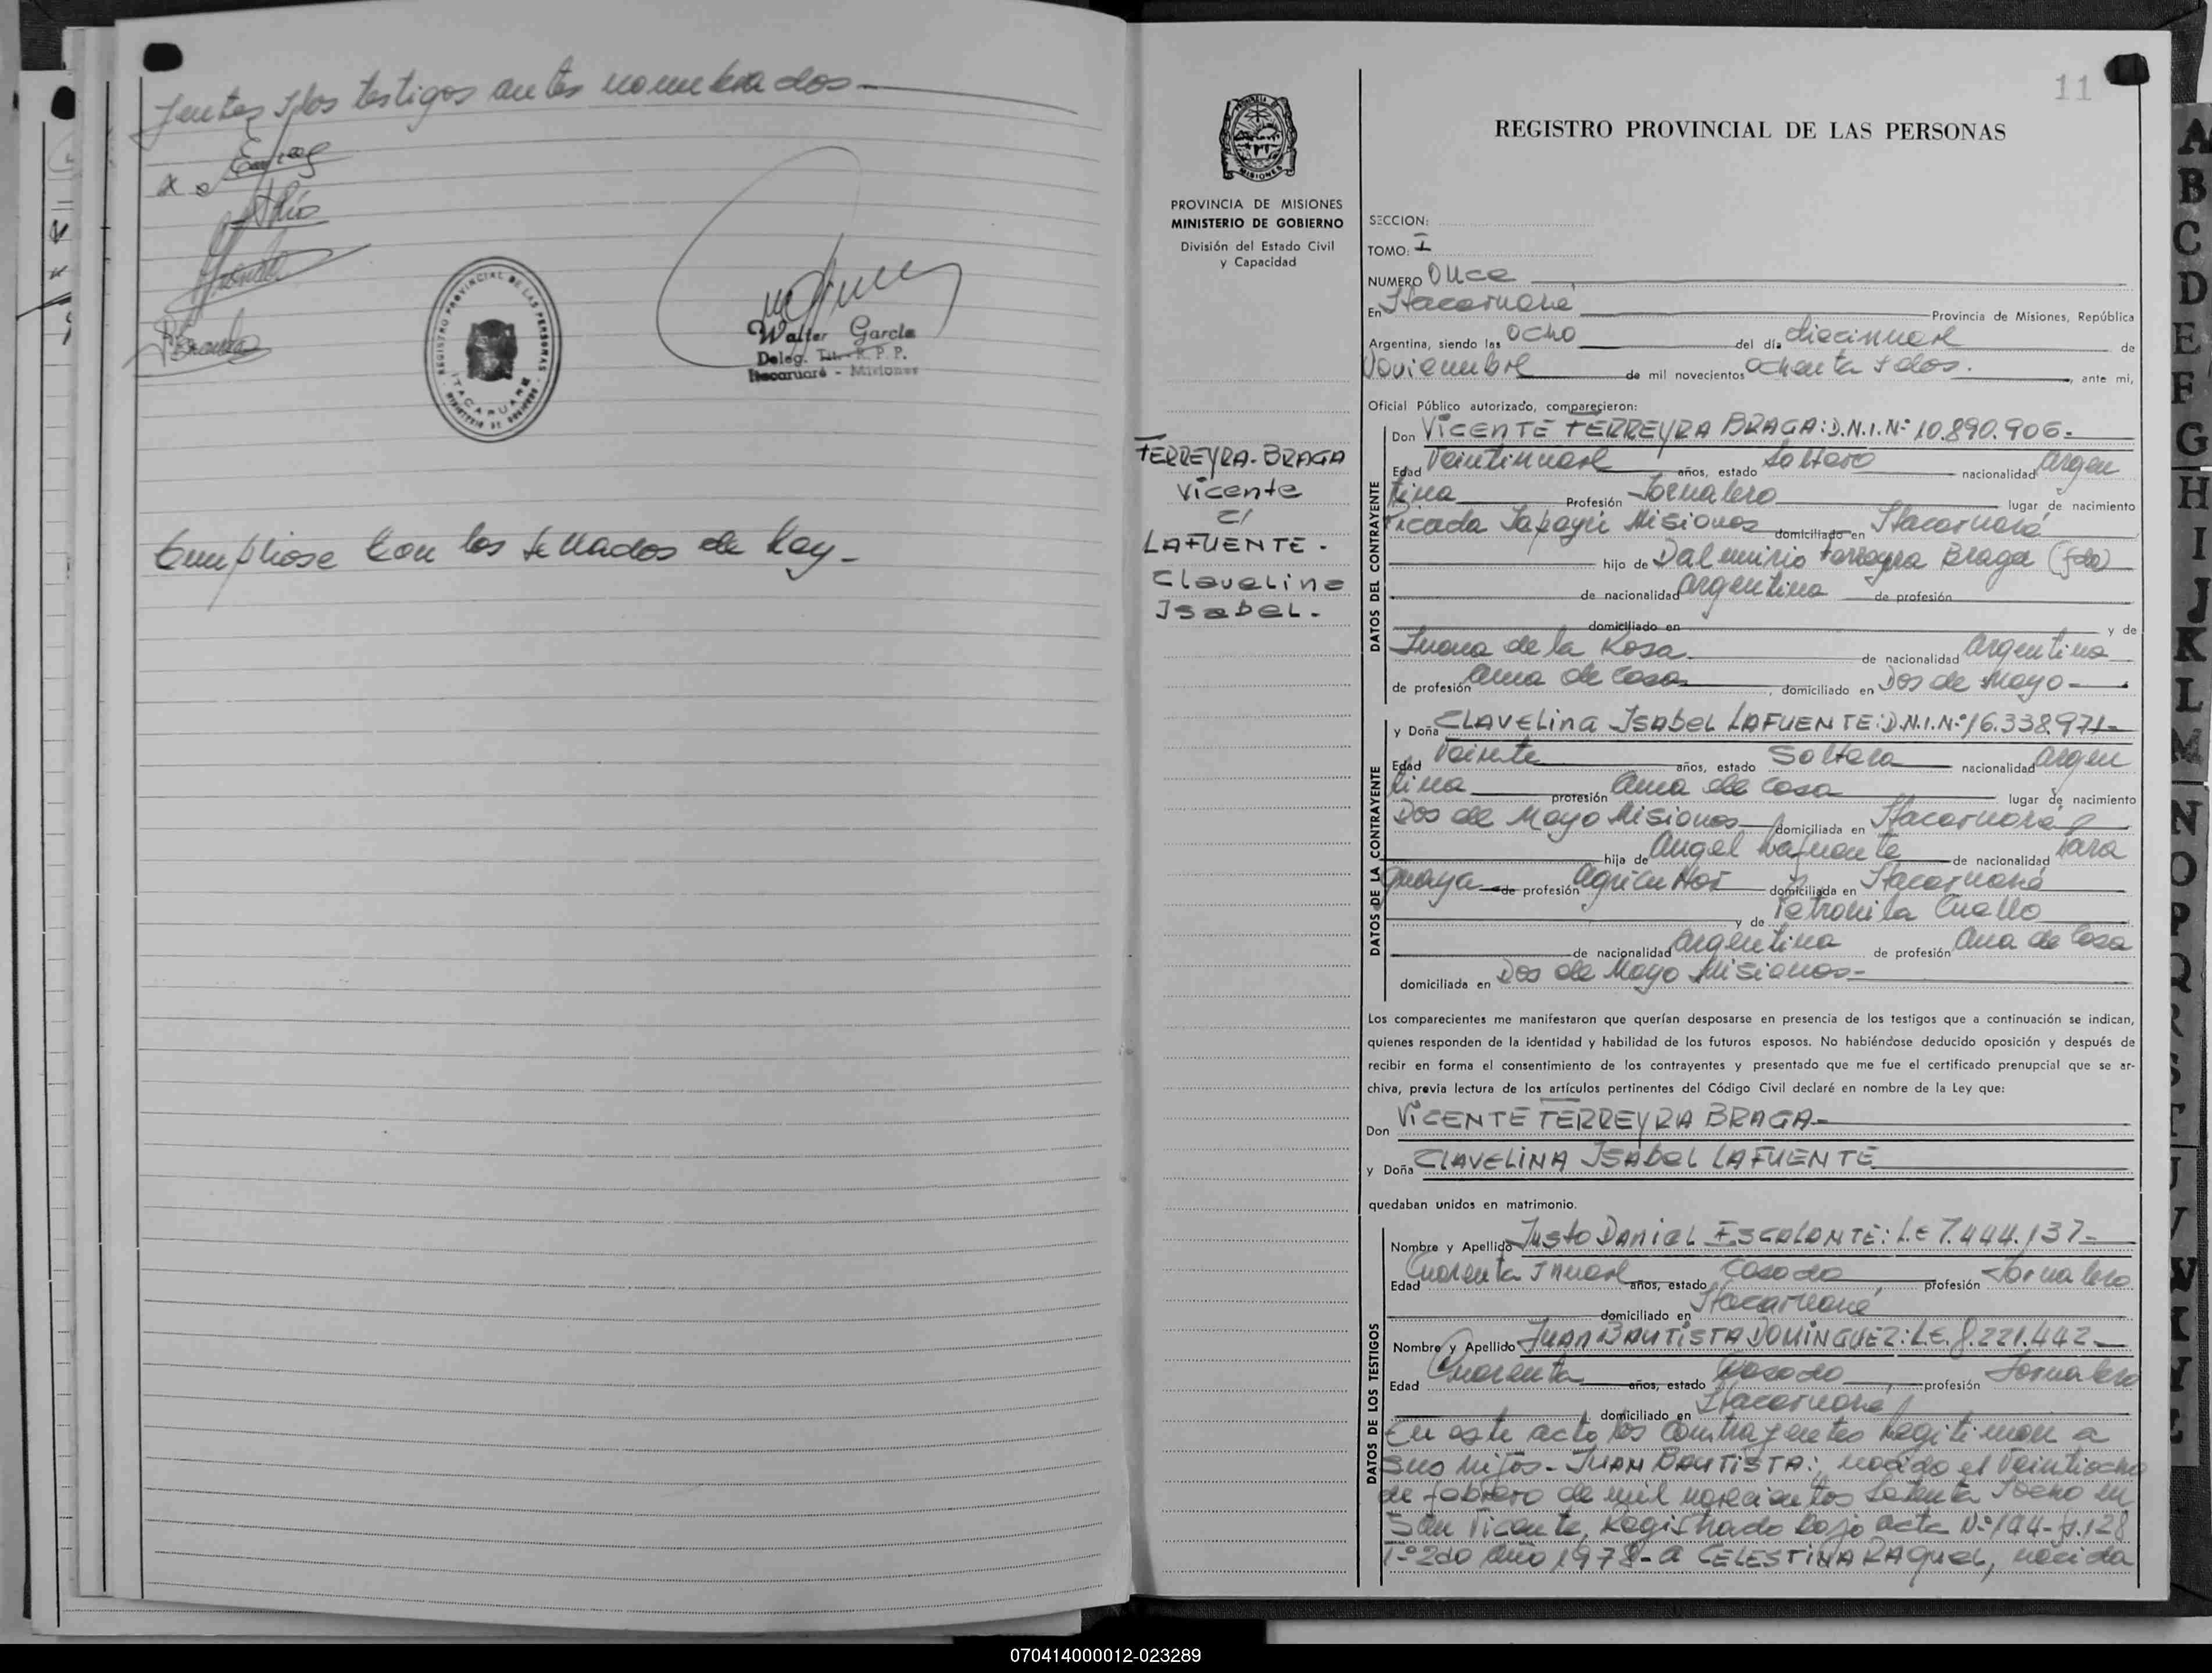 yentes y los testigos antes nombrados
REGISTRO PROVINCIAL DE LAS PERSONAS
ITACARUARE
MINISTERIO DE GOBIERNO
Walter García
Deleg. Tit. R. P. P.
Itacaruaré - Misiones
Cumpliose con los sellados de Ley -
11
MISIONES
PROVINCIA DE MISIONES
MINISTERIO DE GOBIERNO
División del Estado Civil
y Capacidad
FERREYRA-BRAGA
Vicente
c/
LAFUENTE -
Clavelina
Isabel -
REGISTRO PROVINCIAL DE LAS PERSONAS
SECCION:
TOMO: I
NUMERO Once
En Itacaruaré Provincia de Misiones, República
Argentina, siendo las ocho del día diecinueve de
Noviembre de mil novecientos ochenta y dos. , ante mi,
Oficial Público autorizado, comparecieron:
DATOS DEL CONTRAYENTE
Don VICENTE FERREYRA BRAGA: D.N.I.Nº 10.890.906-
Edad Veintinueve años, estado Soltero nacionalidad Argen
tina Profesión Jornalero lugar de nacimiento
Picada Yapeyú Misiones domiciliado en Itacaruaré
hijo de Dalmirio Ferreyra Braga (fdo)
de nacionalidad Argentina de profesión
domiciliado en y de
Juana de la Rosa de nacionalidad Argentina
de profesión Ama de casa , domiciliado en Dos de Mayo -
DATOS DE LA CONTRAYENTE
y Doña CLAVELINA ISABEL LAFUENTE: D.N.I.Nº 16.338.971-
Edad Veinte años, estado Soltera nacionalidad Argen
tina profesión Ama de casa lugar de nacimiento
Dos de Mayo Misiones domiciliada en Itacaruaré
hija de Angel Lafuente de nacionalidad Para
guaya de profesión Agricultor domiciliada en Itacaruaré
y de Petronila Cuello
de nacionalidad Argentina de profesión Ama de Casa
domiciliada en Dos de Mayo Misiones -
Los comparecientes me manifestaron que querían desposarse en presencia de los testigos que a continuación se indican,
quienes responden de la identidad y habilidad de los futuros esposos. No habiéndose deducido oposición y después de
recibir en forma el consentimiento de los contrayentes y presentado que me fue el certificado prenupcial que se ar-
chiva, previa lectura de los artículos pertinentes del Código Civil declaré en nombre de la Ley que:
Don VICENTE FERREYRA BRAGA-
y Doña CLAVELINA ISABEL LAFUENTE
quedaban unidos en matrimonio.
DATOS DE LOS TESTIGOS
Nombre y Apellido Justo Daniel ESCALANTE: L.E 7.444.137-
Edad Cuarenta y nueve años, estado Casado profesión Jornalero
domiciliado en Itacaruaré
Nombre y Apellido JUAN BAUTISTA DOMINGUEZ: L.E. 8.221.442-
Edad Cuarenta años, estado Casado profesión Jornalero
domiciliado en Itacaruaré
En este acto los contrayentes legitiman a
sus hijos - JUAN BAUTISTA: nacido el Veintiocho
de febrero de mil novecientos setenta y ocho en
San Vicente, Registrado bajo acta Nº 144-F.128
Tº 2do Año 1978- a CELESTINA RAQUEL, nacida
A
B
C
D
E
F
G
H
I
J
K
L
M
N
O
P
Q
070414000012-023289